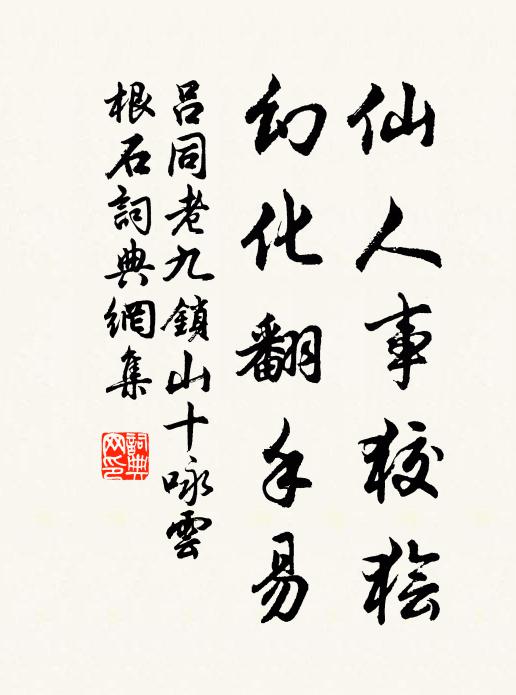 仙人事狡狯
幻化翻手易
吕同老九鎖山十咏雲
根石詞典網集
詞典网印